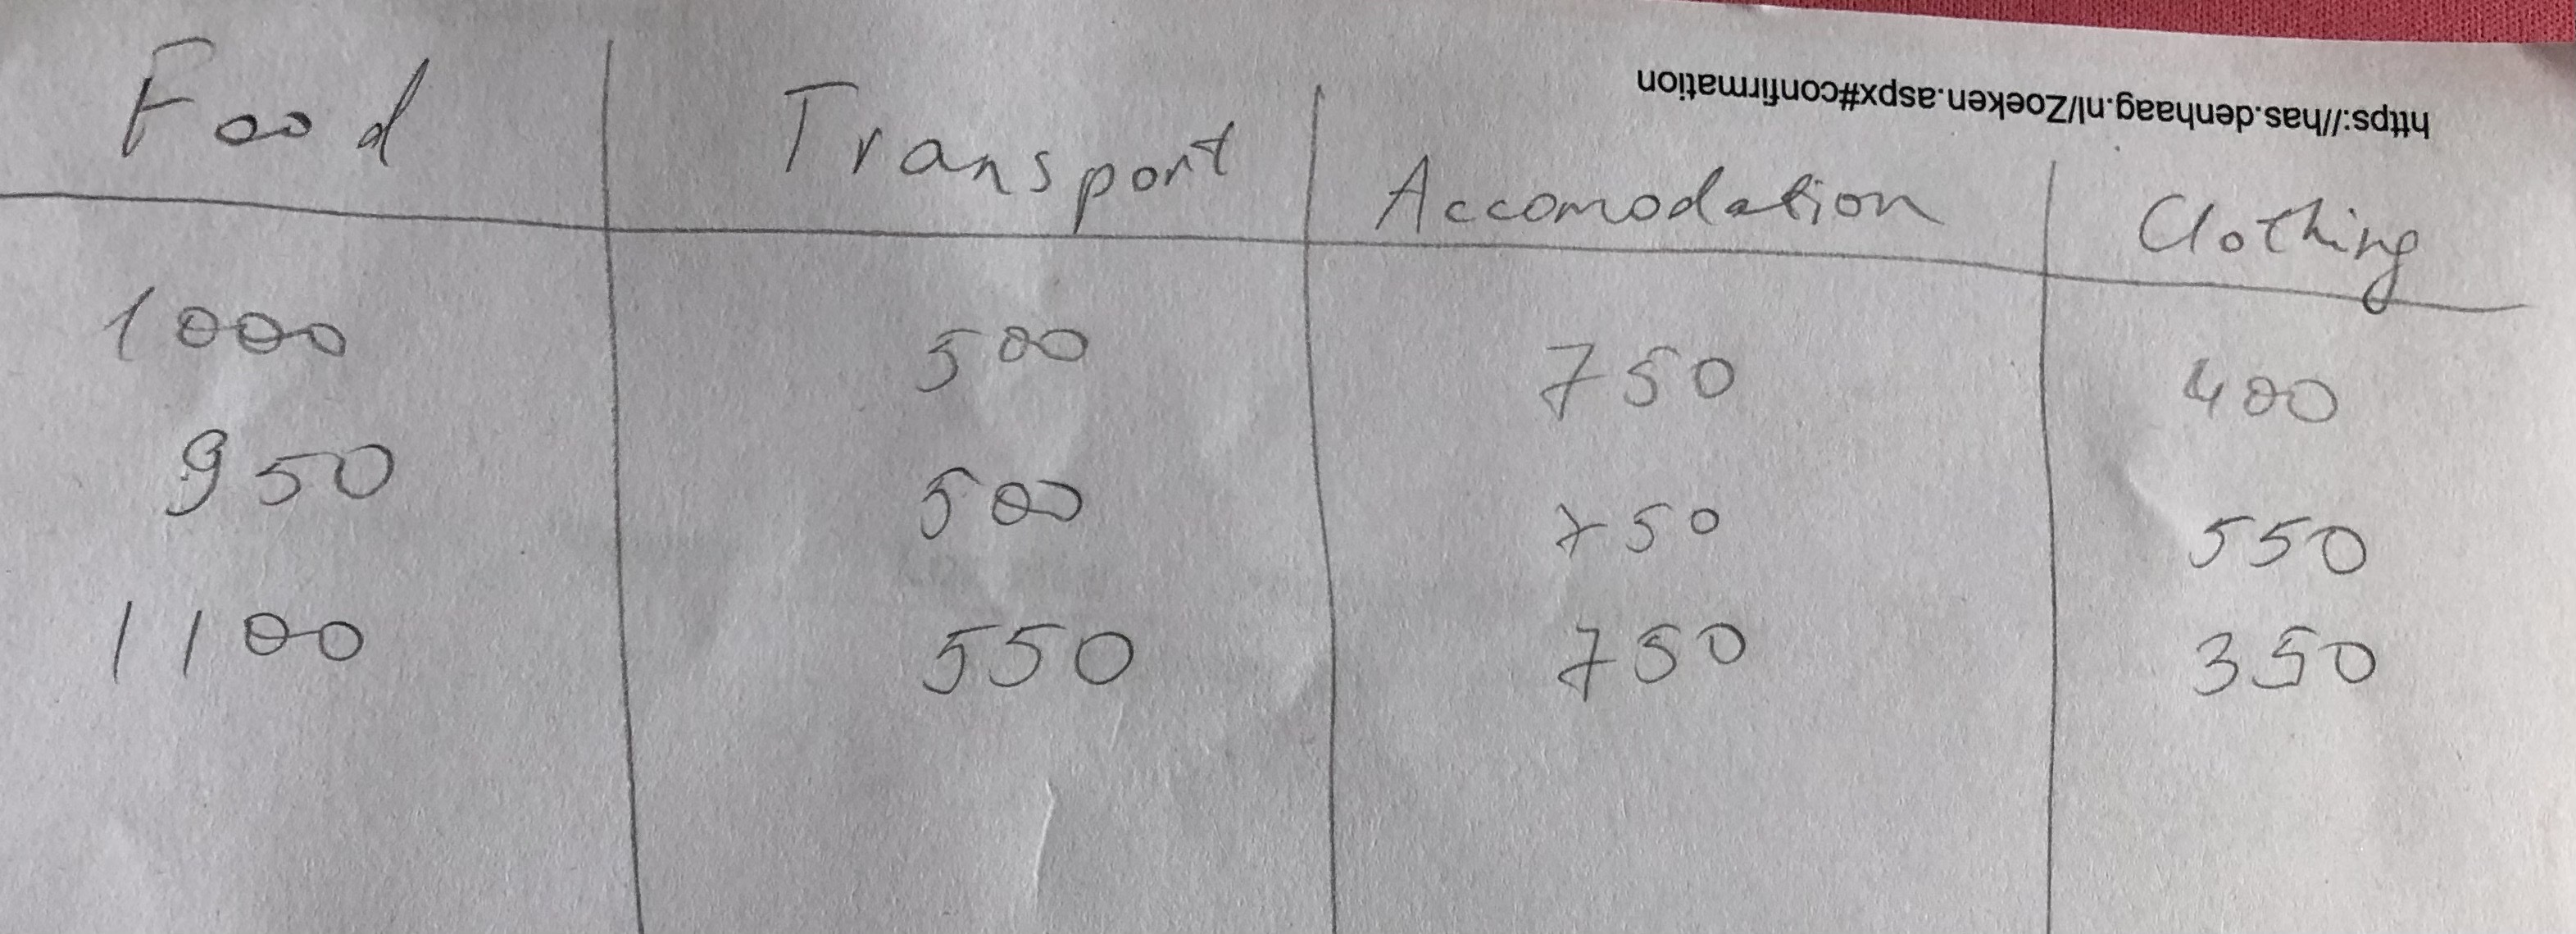 https://has.denhaag.nl/Zoeken.aspx#confirmation
Food Transport Accomodation Clothing
1000 500 750 400
950 500 750 550
1100 550 750 350